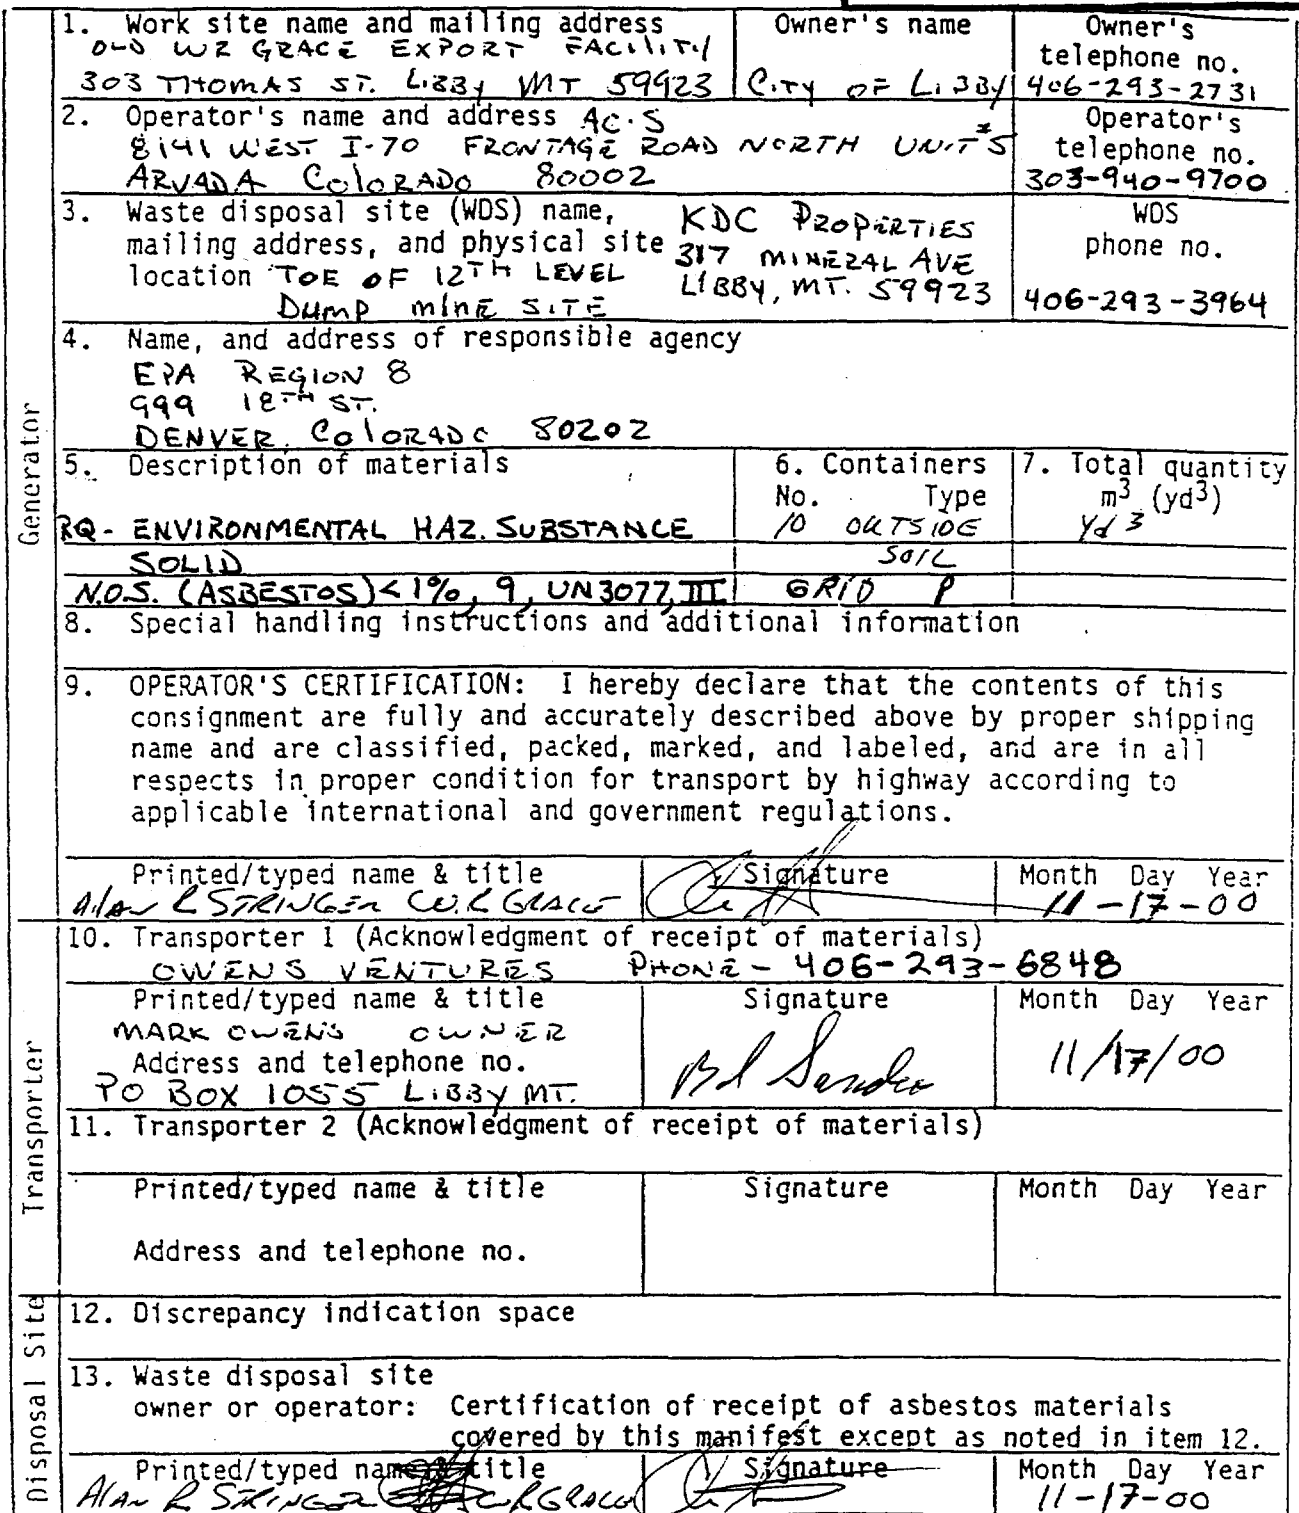 1. Work site name and mailing address
OLD WR GRACE EXPORT FACILITY
303 THOMAS ST. LIBBY MT 59923
Owner's name
CITY OF LIBBY
Owner's
telephone no.
406-293-2731
2. Operator's name and address AC·S
8141 WEST I-70 FRONTAGE ROAD NORTH UNIT #5
ARVADA COLORADO 80002
Operator's
telephone no.
303-940-9700
3. Waste disposal site (WDS) name,
mailing address, and physical site
location TOE OF 12TH LEVEL
DUMP MINE SITE
KDC PROPERTIES
317 MINERAL AVE
LIBBY, MT. 59923
WDS
phone no.
406-293-3964
4. Name, and address of responsible agency
EPA REGION 8
999 18TH ST.
DENVER, COLORADO 80202
Generator
5. Description of materials
RQ- ENVIRONMENTAL HAZ. SUBSTANCE
SOLID
N.O.S. (ASBESTOS) < 1%, 9, UN3077, III
6. Containers
No. Type
10 OUTSIDE
SOIL
GRID P
7. Total quantity
m3 (yd3)
Yd 3
8. Special handling instructions and additional information
9. OPERATOR'S CERTIFICATION: I hereby declare that the contents of this
consignment are fully and accurately described above by proper shipping
name and are classified, packed, marked, and labeled, and are in all
respects in proper condition for transport by highway according to
applicable international and government regulations.
Printed/typed name & title
Alan R STRINGER W.R GRACE
Signature
Month Day Year
11-17-00
10. Transporter 1 (Acknowledgment of receipt of materials)
OWENS VENTURES PHONE - 406-293-6848
Printed/typed name & title
MARK OWENS OWNER
Address and telephone no.
PO BOX 1055 LIBBY MT.
Signature
Month Day Year
11/17/00
Transporter
11. Transporter 2 (Acknowledgment of receipt of materials)
Printed/typed name & title
Signature
Month Day Year
Address and telephone no.
Disposal Site
12. Discrepancy indication space
13. Waste disposal site
owner or operator: Certification of receipt of asbestos materials
covered by this manifest except as noted in item 12.
Printed/typed name & title
Alan R STRINGER W R GRACE
Signature
Month Day Year
11-17-00